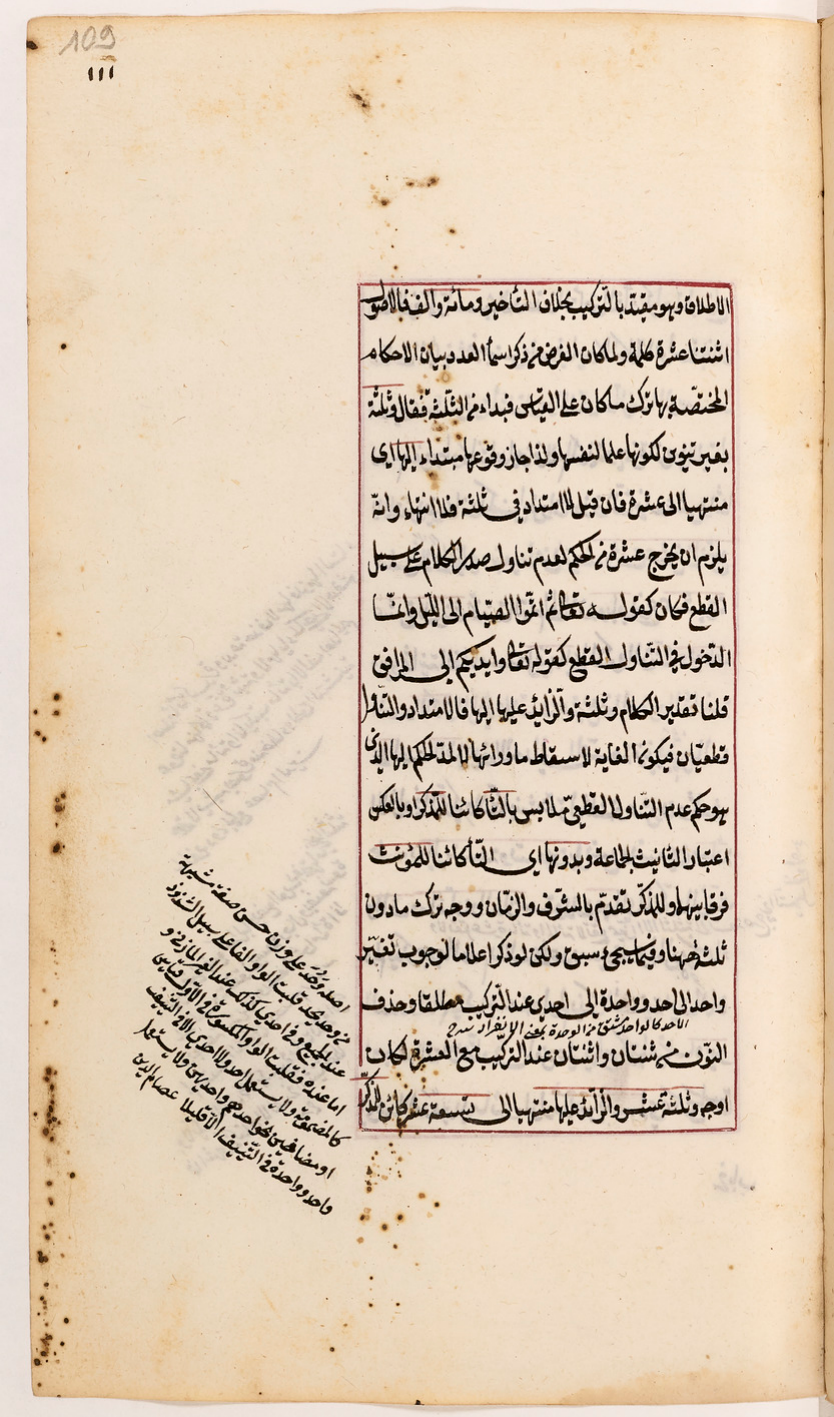 109
١١١
الاطلاق وهو مقيّد بالتركيب بخلاف التأخير ومائة والف فالاصول
اثنتا عشرة كلمة ولما كان الغرض من ذكر اسماء العدد بيان الاحكام
المختصّة بها ترك ما كان على القياس فبداء من الثلثة فقال وثلثة
بغير تنوين لكونها علما لنفسها ولذا جاز وقوعها مبتداء اليها اى
منتهيا الى عشرة فان قيل لا امتداد فى ثلثة فلا انتهاء وانّه
يلزم ان يخرج عشرة من الحكم لعدم تناول صدر الكلام على سبيل
القطع فكان كقوله تعالى ثم اتمّوا الصيام الى الليل وانّما
الدخول فى التّناول القطع كقوله تعالى وايديكم الى المرافق
قلنا تقدير الكلام وثلثة والزائد عليها اليها فالامتداد والتناول
قطعيّان فيكون الغاية لاسقاط ما ورائها لا لمدّ الحكم اليها الذى
هو حكم عدم التّناول القطعىّ ملابس بالتّاء كائنا للمذكر او بالعكس
اعتبار التانيث بالجماعة وبدونها اى التّاء كائنا للمؤنث
فرقا بينهما وللمذكّر تقدّم بالشرف والزمان ووجه ترك ما دون
ثلثة ههنا وفيما سيجئ سبق ولكن لو ذكر اعلاما لوجوب تغيّر
واحد الى احد وواحدة الى احدى عند التركيب مطلقا وحذف
الاحد كالواحد مشتق من الوحدة بمعنى الانفراد شرح
النّون من ثنتان واثنتان عند التركيب مع العشرة لكان
اوجه وثلثة عشر والزائد عليها منتهيا الى تسعة عشر كائن للمذكّر
اصله وَحَد على وزن حسن صفة مشبهة
من وحد يحد قلبت الواو الفا على سبيل الشذوذ
عند الجميع وفى احدى كذلك عند غير المازنى و
اما عنده فقلبت الواو المكسورة فى الاول قياسى
كالمضمومة ولا يستعمل احد ولا احدى الا فى التنيف
او مضافين نحو احدهم واحديهن ولا يستعمل
واحد وواحدة فى التنيف الا قليلا عصام الدين